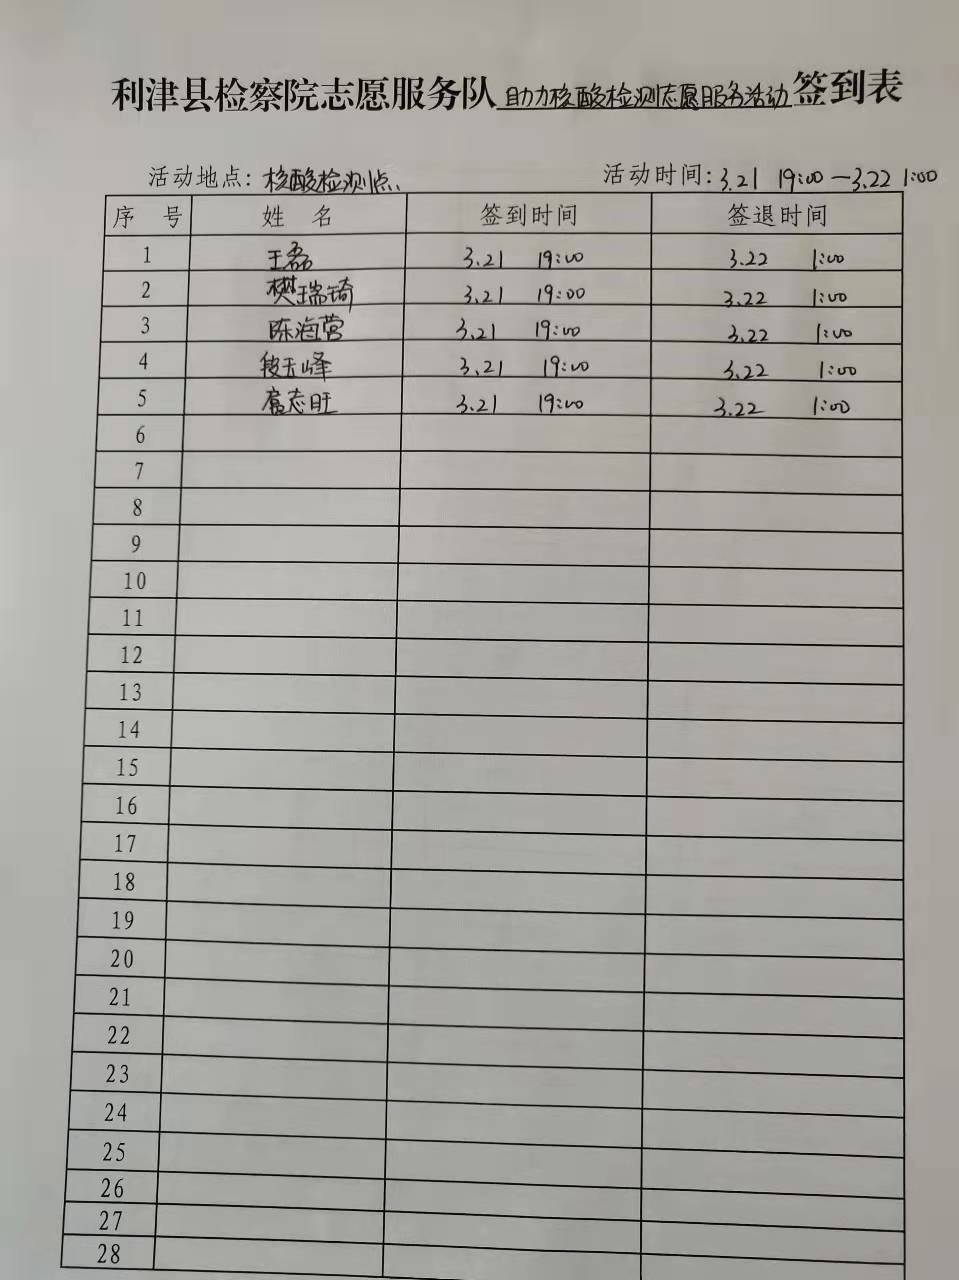 利津县检察院志愿服务队助力核酸检测志愿服务活动签到表
活动地点:核酸检测点 活动时间:3.21 19:00—3.22 1:00
序 号 姓 名 签到时间 签退时间
1 王磊 3.21 19:00 3.22 1:00
2 樊瑞琦 3.21 19:00 3.22 1:00
3 陈海营 3.21 19:00 3.22 1:00
4 段玉峰 3.21 19:00 3.22 1:00
5 志旺 3.21 19:00 3.22 1:00
6
7
8
9
10
11
12
13
14
15
16
17
18
19
20
21
22
23
24
25
26
27
28